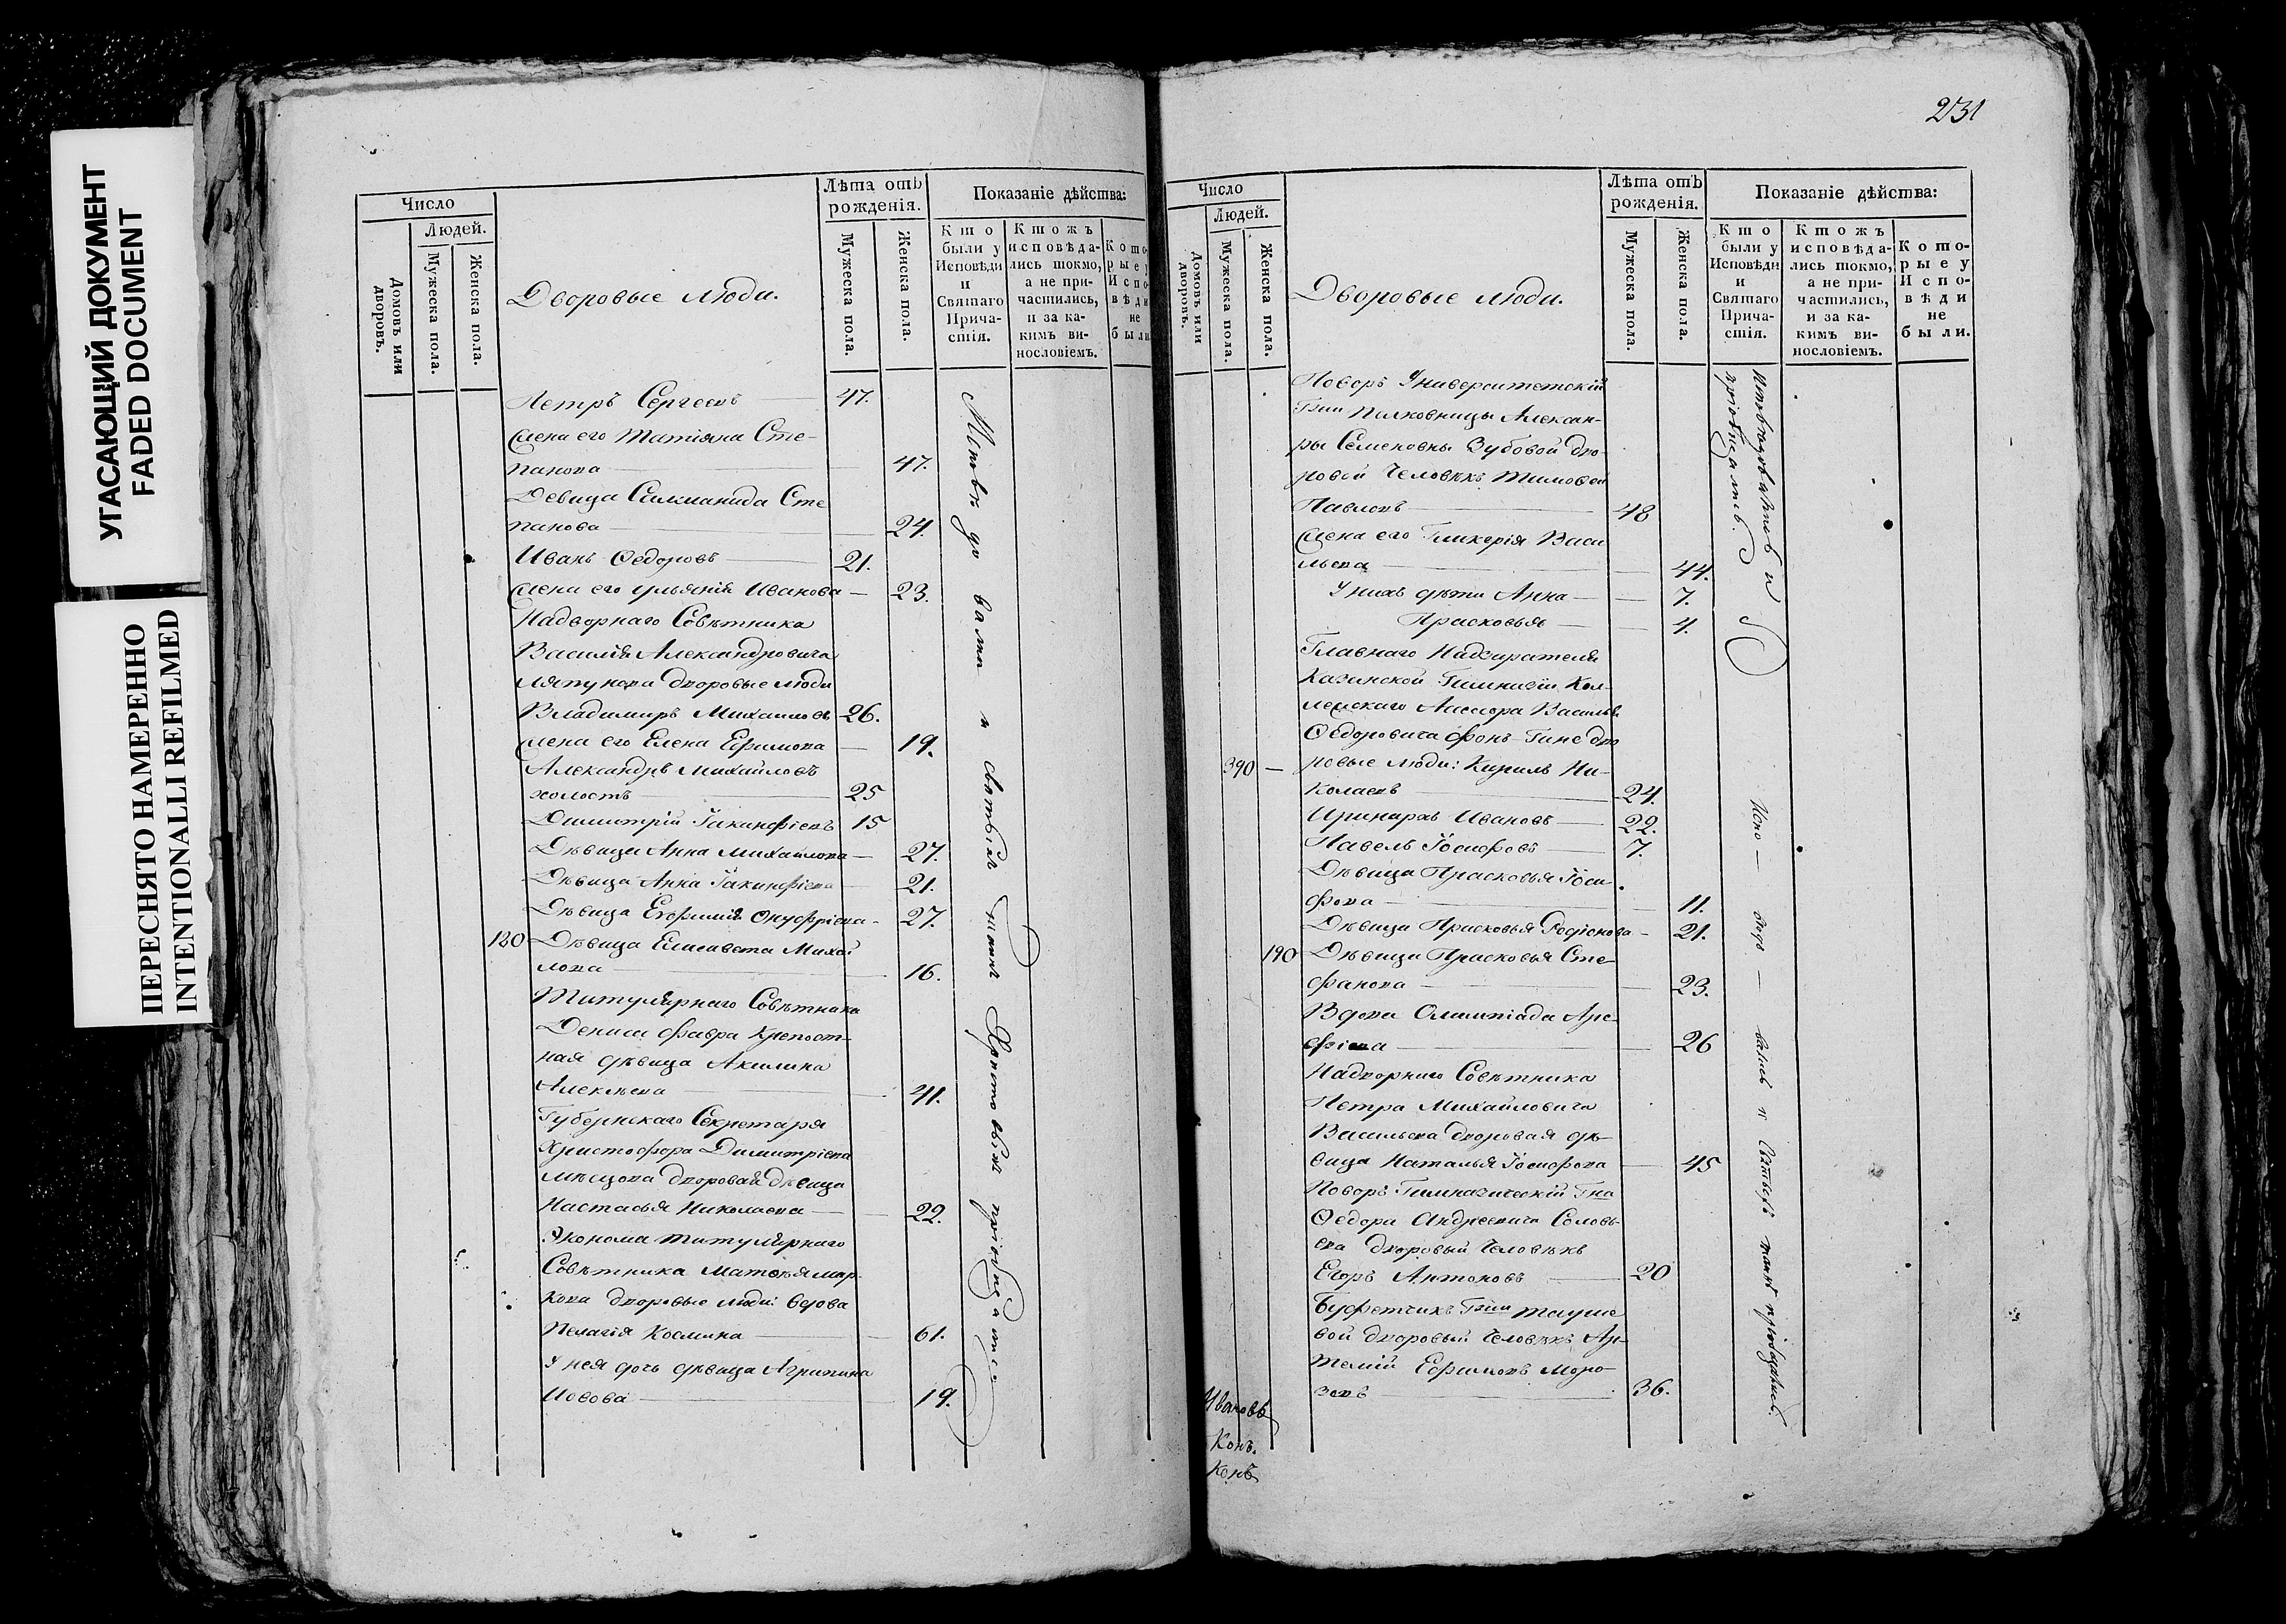 УГАСАЮЩИЙ ДОКУМЕНТ
FADED DOCUMENT
ПЕРЕСНЯТО НАМЕРЕННО
INTENTIONALLI REFILMED
Число
Людей.
Домовъ или дворовъ.
Мужеска пола.
Женска пола.
Дворовые люди.
Лѣта отъ рожденія.
Мужеска пола.
Женска пола.
Показаніе дѣйства:
Кто были у Исповѣди и Святаго Причастія.
Ктожъ исповѣдались токмо, а не причастились, и за какимъ винословіемъ.
Которые у Исповѣди не были
Петръ Сергеевъ 47.
жена его Татіяна Сте-
панова 47.
Девица Сте
панова 24.
Иванъ Ѳедоровъ 21.
жена его Ульянія Иванова 23.
Надворнаго Совѣтника
Василія Александровича
Ляпунова дворовые люди
Владимиръ Михаиловъ 26.
жена его Елена Ефимова 19.
Александръ Михайловъ
холостъ 25
Димитрій Іакинфіевъ 15
Дѣвица Анна Михайлова 27.
Дѣвица Анна Іакинфіева 21.
Дѣвица Евфимія Онуфріева 27.
180 Дѣвица Елисавета Михай
лова 16.
Титулярнаго Совѣтника
Дениса Фавра крепост-
ная дѣвица Акилина
Алексѣева 41.
Губернскаго Секретаря
Христофора Димитріева
дворовая дѣвица
Настасья Николаева 22.
Эконома титулярнаго
Совѣтника Матвѣя Мар-
кова дворовые люди: вдова
Пелагія Космина 61.
У нея дочь дѣвица Агрипина
Иовова 19.
231
Число
Людей.
Домовъ или дворовъ.
Мужеска пола.
Женска пола.
Дворовые люди.
Лѣта отъ рожденія.
Мужеска пола.
Женска пола.
Показаніе дѣйства:
Кто были у Исповѣди и Святаго Причастія.
Ктожъ исповѣдались токмо, а не причастились, и за какимъ винословіемъ.
Которые у Исповѣди не были.
Поворъ Университетскій
Гжи Полковницы Алексан-
ры Семеновны Зубовой дво-
ровой человѣкъ Тимофей
Павловъ 48
жена его Гликерія Васи
льева 44.
У нихъ дѣти Анна 7.
Прасковья 4.
Главнаго Надзирателя
Казанской Гимназіи Кол-
лежскаго Ассесора Василья
Ѳедоровича фонъ-Гине дво
390 ровые люди: Кирилъ Ни-
колаевъ 24.
Иринархъ Ивановъ 22.
Павелъ Іосифовъ 7.
Дѣвица Прасковья Іоси-
фова 11.
Дѣвица Прасковья Родіонова 21.
190 Дѣвица Прасковья Сте-
фанова 23.
Вдова Олимпіада Аре-
фіева 26
Надворнаго Совѣтника
Петра Михайловича
Васильева дворовая дѣ-
вица Наталья Іосифова 45
Поворъ Гимназическій Гна
Ѳедора Андреевича Соловь-
ева дворовый человѣкъ
Егоръ Антоновъ 20
Буфетчикъ Гжи
вой дворовый человѣкъ Ар-
темій Ефимовъ Моро-
зовъ 36.
Ивановъ
Конъ.
Конъ